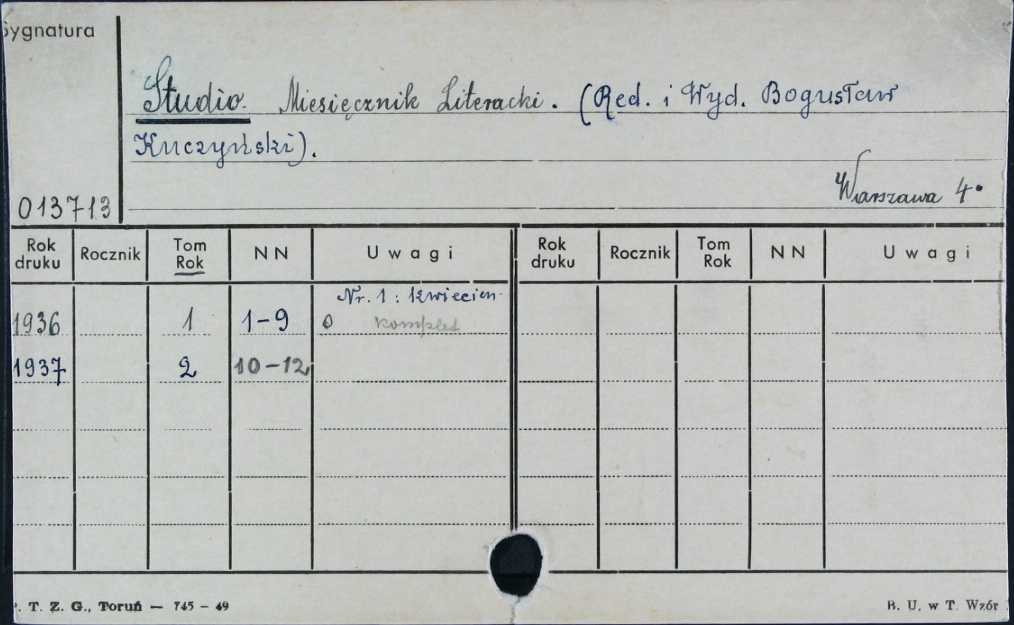 Sygnatura
Studio. Miesięcznik Literacki. (Red. i Wyd. Bogusław
Kuczyński).
Warszawa 4°
013713
Rok druku Rocznik Tom Rok NN Uwagi Rok druku Rocznik Tom Rok NN Uwagi
Nr. 1: kwiecień
1936 1 1-9 0 komplet
1937 2 10-12
P. T. Z. G., Toruń — 745 - 49
B. U. w T. Wzór